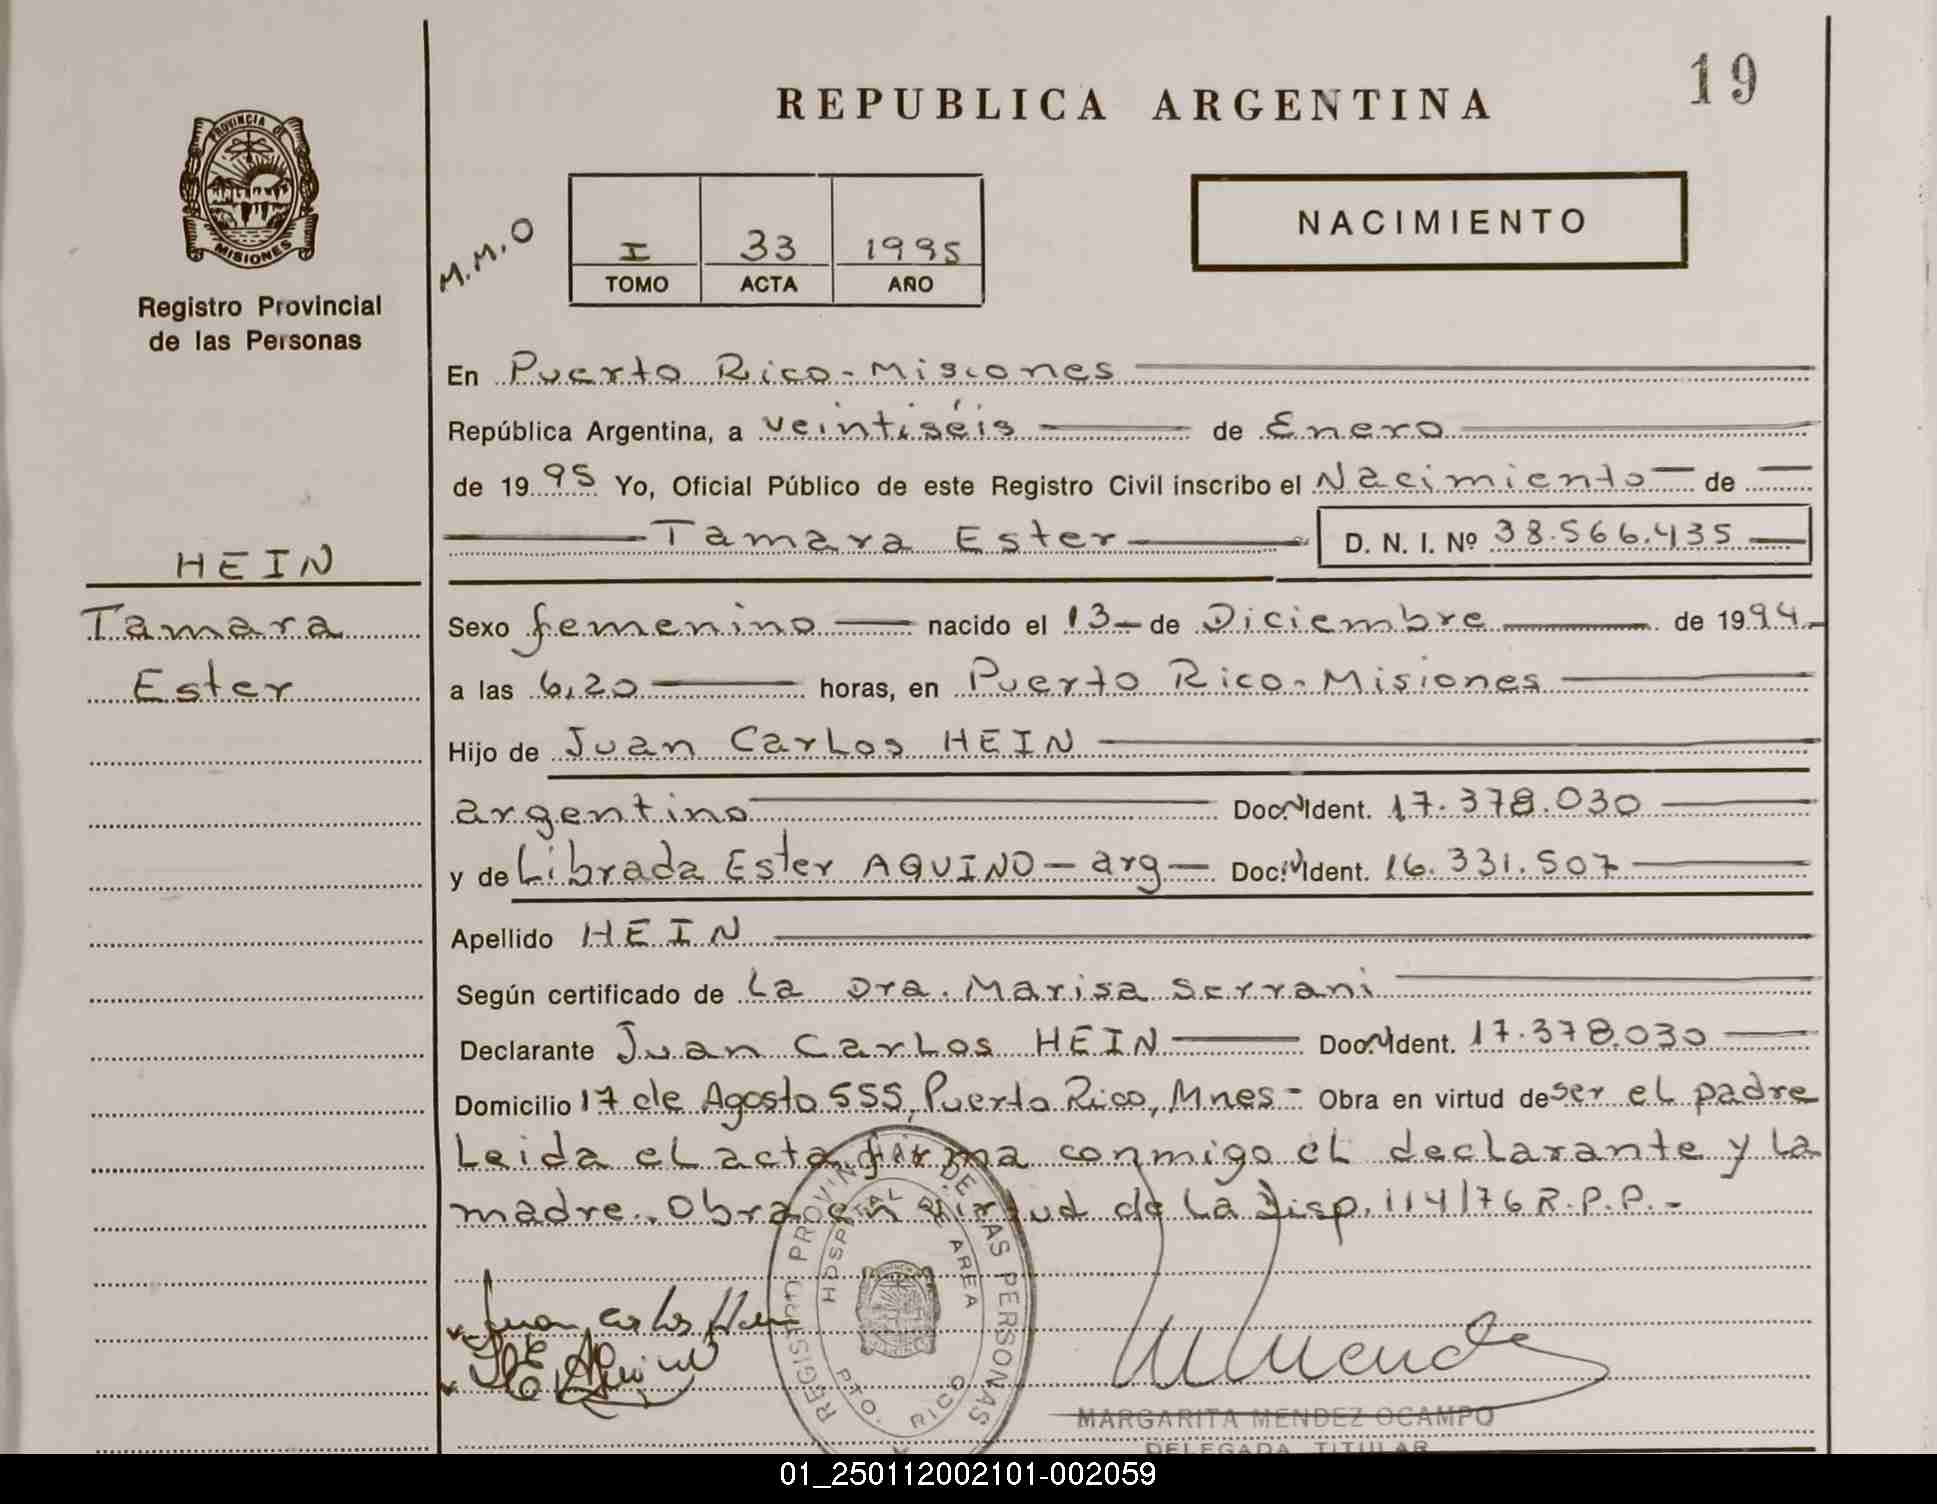 19
REPUBLICA ARGENTINA
PROVINCIA DE
MISIONES
Registro Provincial
de las Personas
M.M.O
I 33 1995
TOMO ACTA AÑO
NACIMIENTO
En Puerto Rico - Misiones
República Argentina, a veintiséis de Enero
de 1995 Yo, Oficial Público de este Registro Civil inscribo el Nacimiento de
Tamara Ester D. N. I. Nº 38.566.435
HEIN
Tamara
Ester
Sexo femenino nacido el 13 de Diciembre de 1994
a las 6,20 horas, en Puerto Rico - Misiones
Hijo de Juan Carlos HEIN
argentino Doc. Ident. 17.378.030
y de Librada Ester AQUINO - arg - Doc. Ident. 16.331.507
Apellido HEIN
Según certificado de La Dra. Marisa Serrani
Declarante Juan Carlos HEIN Doc. Ident. 17.378.030
Domicilio 17 de Agosto 555, Puerto Rico, Mnes - Obra en virtud de ser el padre
Leida el acta firma conmigo el declarante y la
madre. Obra en virtud de la Disp. 114/76 R.P.P.-
REGISTRO PROVINCIAL DE LAS PERSONAS
HOSPITAL DE AREA
PTO. RICO
Juan Carlos Hein
MARGARITA MENDEZ OCAMPO
DELEGADA TITULAR
01_250112002101-002059